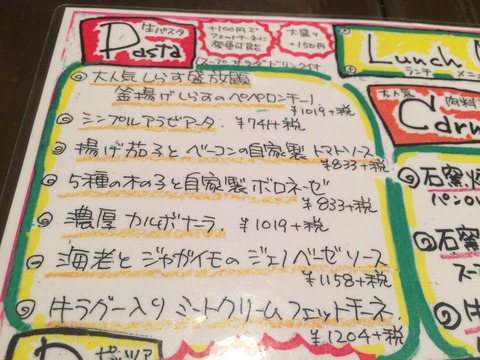 生パスタ
Pasta
+100円で
フェットチーネに
変更可能
大盛り
+150円
(スープ サラダ ドリンク付
大人気しらす盛放題
釜揚げしらすのペペロンチーノ
¥1019+税
シンプルアラビアータ ¥741+税
揚げ茄子とベーコンの自家製トマトソース
¥833+税
5種の木の子と自家製ボロネーゼ
¥833+税
濃厚カルボナーラ. ¥1019+税
海老とジャガイモのジェノベーゼソース
¥1158+税
牛ラグー入りミートクリームフェットチーネ.
¥1204+税
Lunch
ランチ
大人気
石窯
パン
石窯
スー
牛
ピッツァ